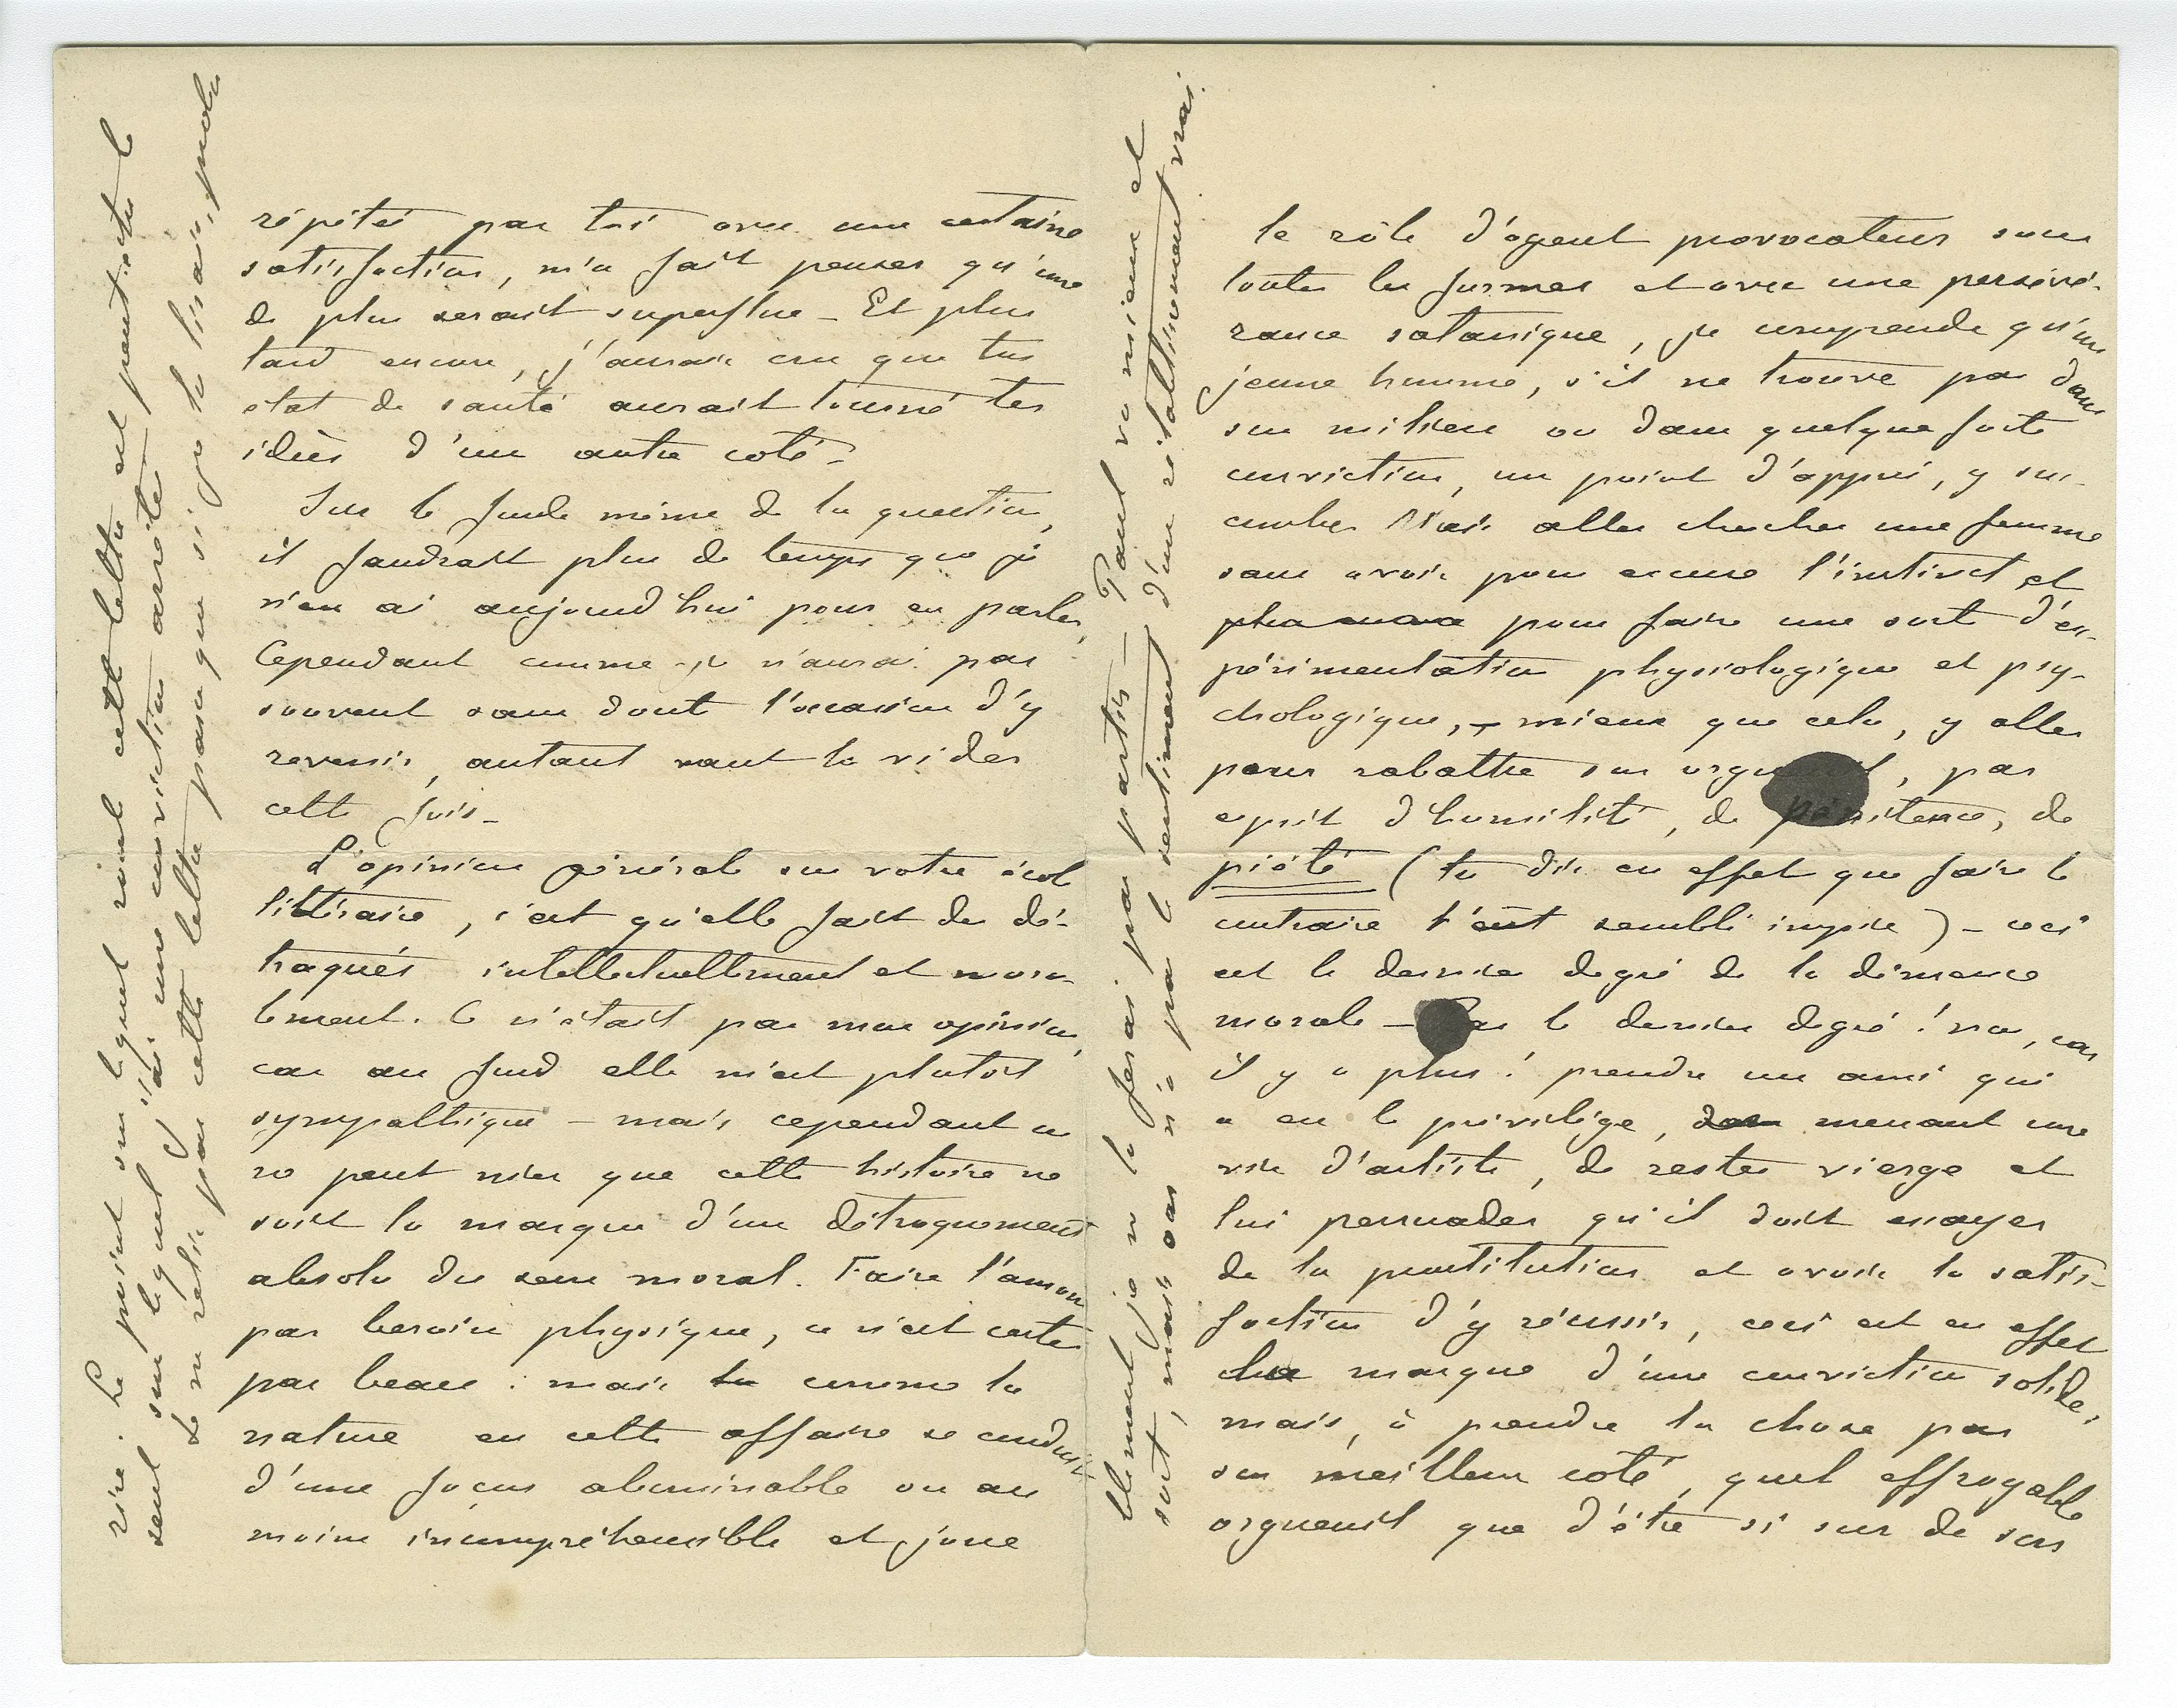 répétée par toi avec une certaine
satisfaction, m'a fait penser qu'une
de plus serait superflue – Et plus
tard encore, j'aurais cru que ton
état de santé aurait tourné tes
idées d'un autre coté –
Sur le fonds même de la question,
il faudrait plus de temps que je
n'en ai aujourd'hui pour en parler,
Cependant comme je n'aurai pas
souvent sans dout l'occasion d'y
revenir, autant vaut la vider
cette fois –
L'opinion générale sur votre école
littéraire, c'est qu'elle fait des dé-
traqués intellectuellement et mora-
lement. Ce n'était pas mon opinion,
car au fond elle m'est plutot
sympathique – mais cependant on
ne peut nier que cette histoire ne
soit la marque d'un détraquement
absolu du sens moral. Faire l'amour
par besoin physique, ce n'est certes
pas beau : mais comme la
nature en cette affaire se conduit
d'une façon abominable ou au
moins incompréhensible et joue
le rôle d'agent provocateur sous
toutes les formes et avec une persévé-
rance satanique, je comprends qu'un
jeune homme, s'il ne trouve pas dans
son milieu ou dans quelque forte
conviction, un point d'appui, y suc-
combe. Mais aller chercher une femme
sans avoir pour excuse l'instinct et
pour faire une sorte d'ex-
périmentation physiologique et psy-
chologique, – mieux que cela, y aller
pour rabattre son orgueil, par
esprit d'humilité, de pénitence, de
piété (tu dis en effet que faire le
contraire t'eût semblé impie) – ceci
est le dernier degré de la démence
morale – Pas le dernier degré ! non, car
il y a plus ! prendre un ami qui
a eu le privilège, menant une
vie d'artiste, de rester vierge et
lui persuader qu'il doit essayer
de la prostitution et avoir la satis-
faction d'y réussir, ceci est en effet
la marque d'une conviction solide ;
mais, à prendre la chose par
son meilleur coté, quel effroyable
orgueuil que d'être si sur de son
blement je ne le ferais pas partir – Tant vanieux et
soit, mais on n'a pas le sentiment d'un rétablissement vrai.
rire. Le point sur lequel roule cette lettre est peut-être le
seul sur lequel j'ai une conviction arrêtée
Ne relis pas cette lettre parce que si je la lisais, proba